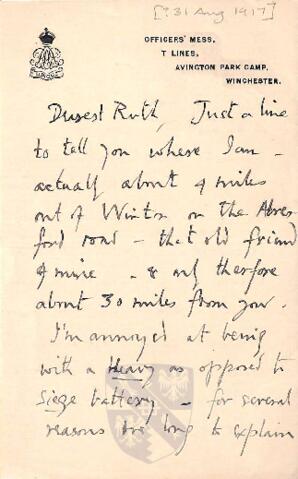 [?31 Aug 1917]
OFFICERS' MESS,
T LINES,
AVINGTON PARK CAMP,
WINCHESTER.
Dearest Ruth, Just a line
to tell you where I am –
actually about 4 miles
out of Winton on the Alres-
ford road – that old friend
of mine – & only therefore
about 30 miles from you.
I'm annoyed at being
with a Heavy as opposed to
Siege battery – for several
reasons too long to explain